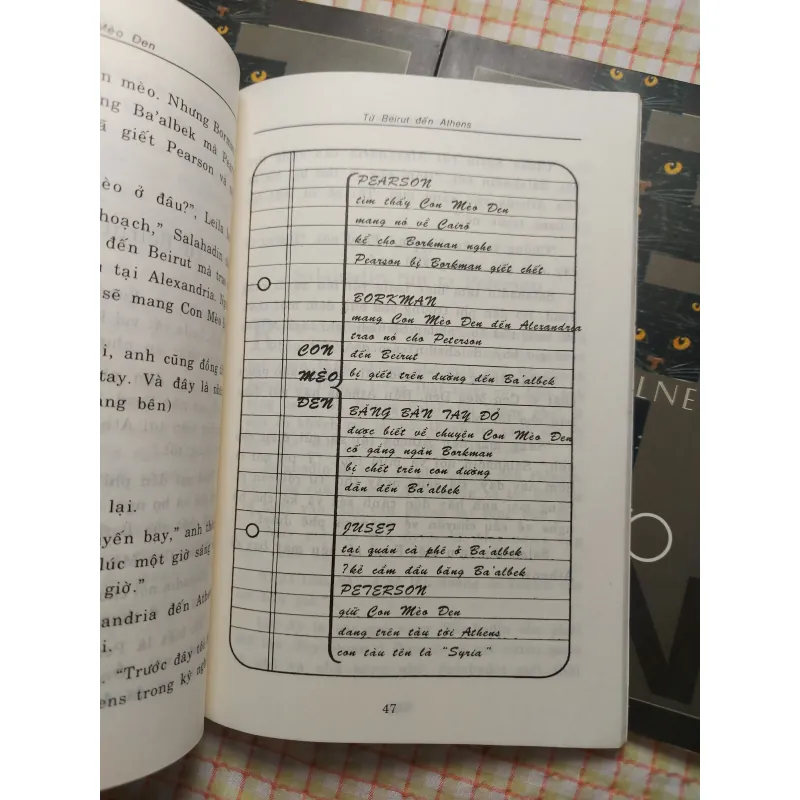 Mèo Đen
n mèo. Nhưng
Ba'albek mà
giết Pearson
èo ở đâu?", Leila
hoạch," Salahadin
đến Beirut mà
tại Alexandria.
sẽ mang Con Mèo
i, anh cũng đồng
tay. Và đây là
ang bên)
lại.
yến bay," anh
lúc một giờ sáng
giờ."
xandria đến
i.
"Trước đây tôi
ens trong kỳ
Từ Beirut đến Athens
PEARSON
tìm thấy Con Mèo Đen
mang nó về Cairô
kể cho Borkman nghe
Pearson bị Borkman giết chết
BORKMAN
mang Con Mèo Đen đến Alexandria
trao nó cho Peterson
đến Beirut
bị giết trên đường đến Ba'albek
CON
MÈO
ĐEN
BĂNG BÀN TAY ĐỎ
được biết về chuyện Con Mèo Đen
cố gắng ngăn Borkman
bị chết trên con đường
dẫn đến Ba'albek
JUSEF
tại quán cà phê ở Ba'albek
?kẻ cầm đầu băng Ba'albek
PETERSON
giữ Con Mèo Đen
đang trên tàu tới Athens
con tàu tên là "Syria"
47
LNE